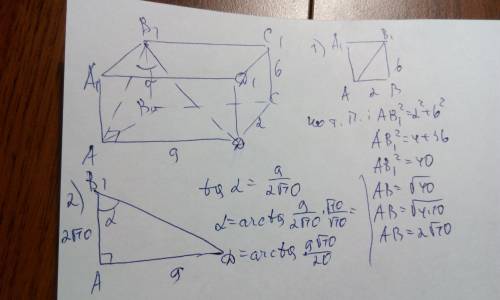 B₁
C₁
A₁
α
D₁
6
B
C
2
A
9
D
1) A₁ B₁
6
A 2 B
по т. П.: AB₁² = 2² + 6²
AB₁² = 4 + 36
AB₁² = 40
AB = √40
AB = √4·10
AB = 2√10
2) B₁
α
2√10
A
9
D
tg α = 9/2√10
α = arctg 9/2√10 · √10/√10 =
= arctg 9√10/20